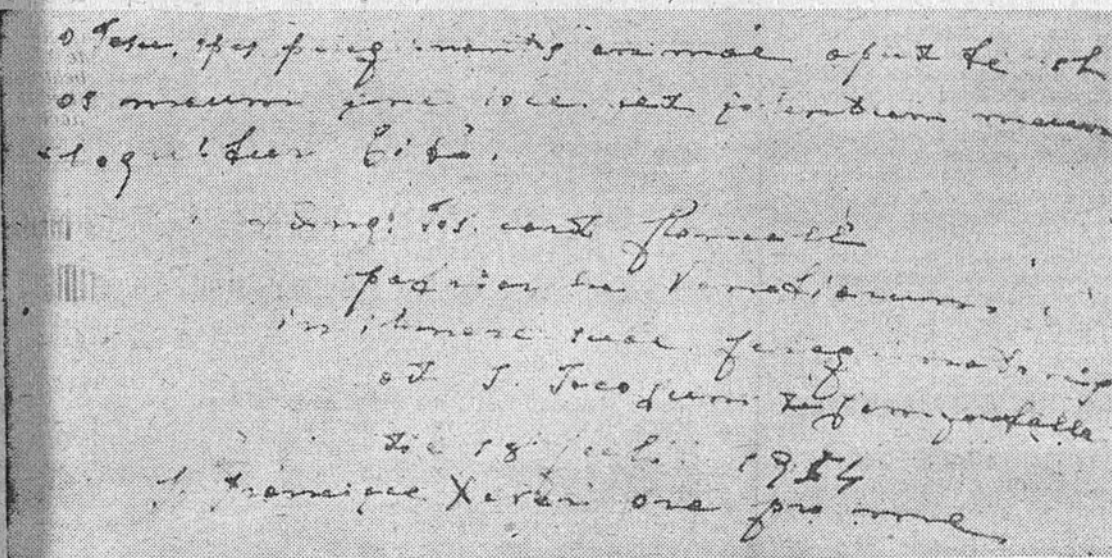 O Jesu, spes peregrinantis animae apud te est
os meum sine voce et silentium meum
loquitur tibi.
Ang. Jos. card. Roncalli
patriarcha Venetiarum,
in itinere suae peregrinationis
ad S. Jacobum de Compostella
die 18 julii 1954
S. Francisce Xaveri ora pro me